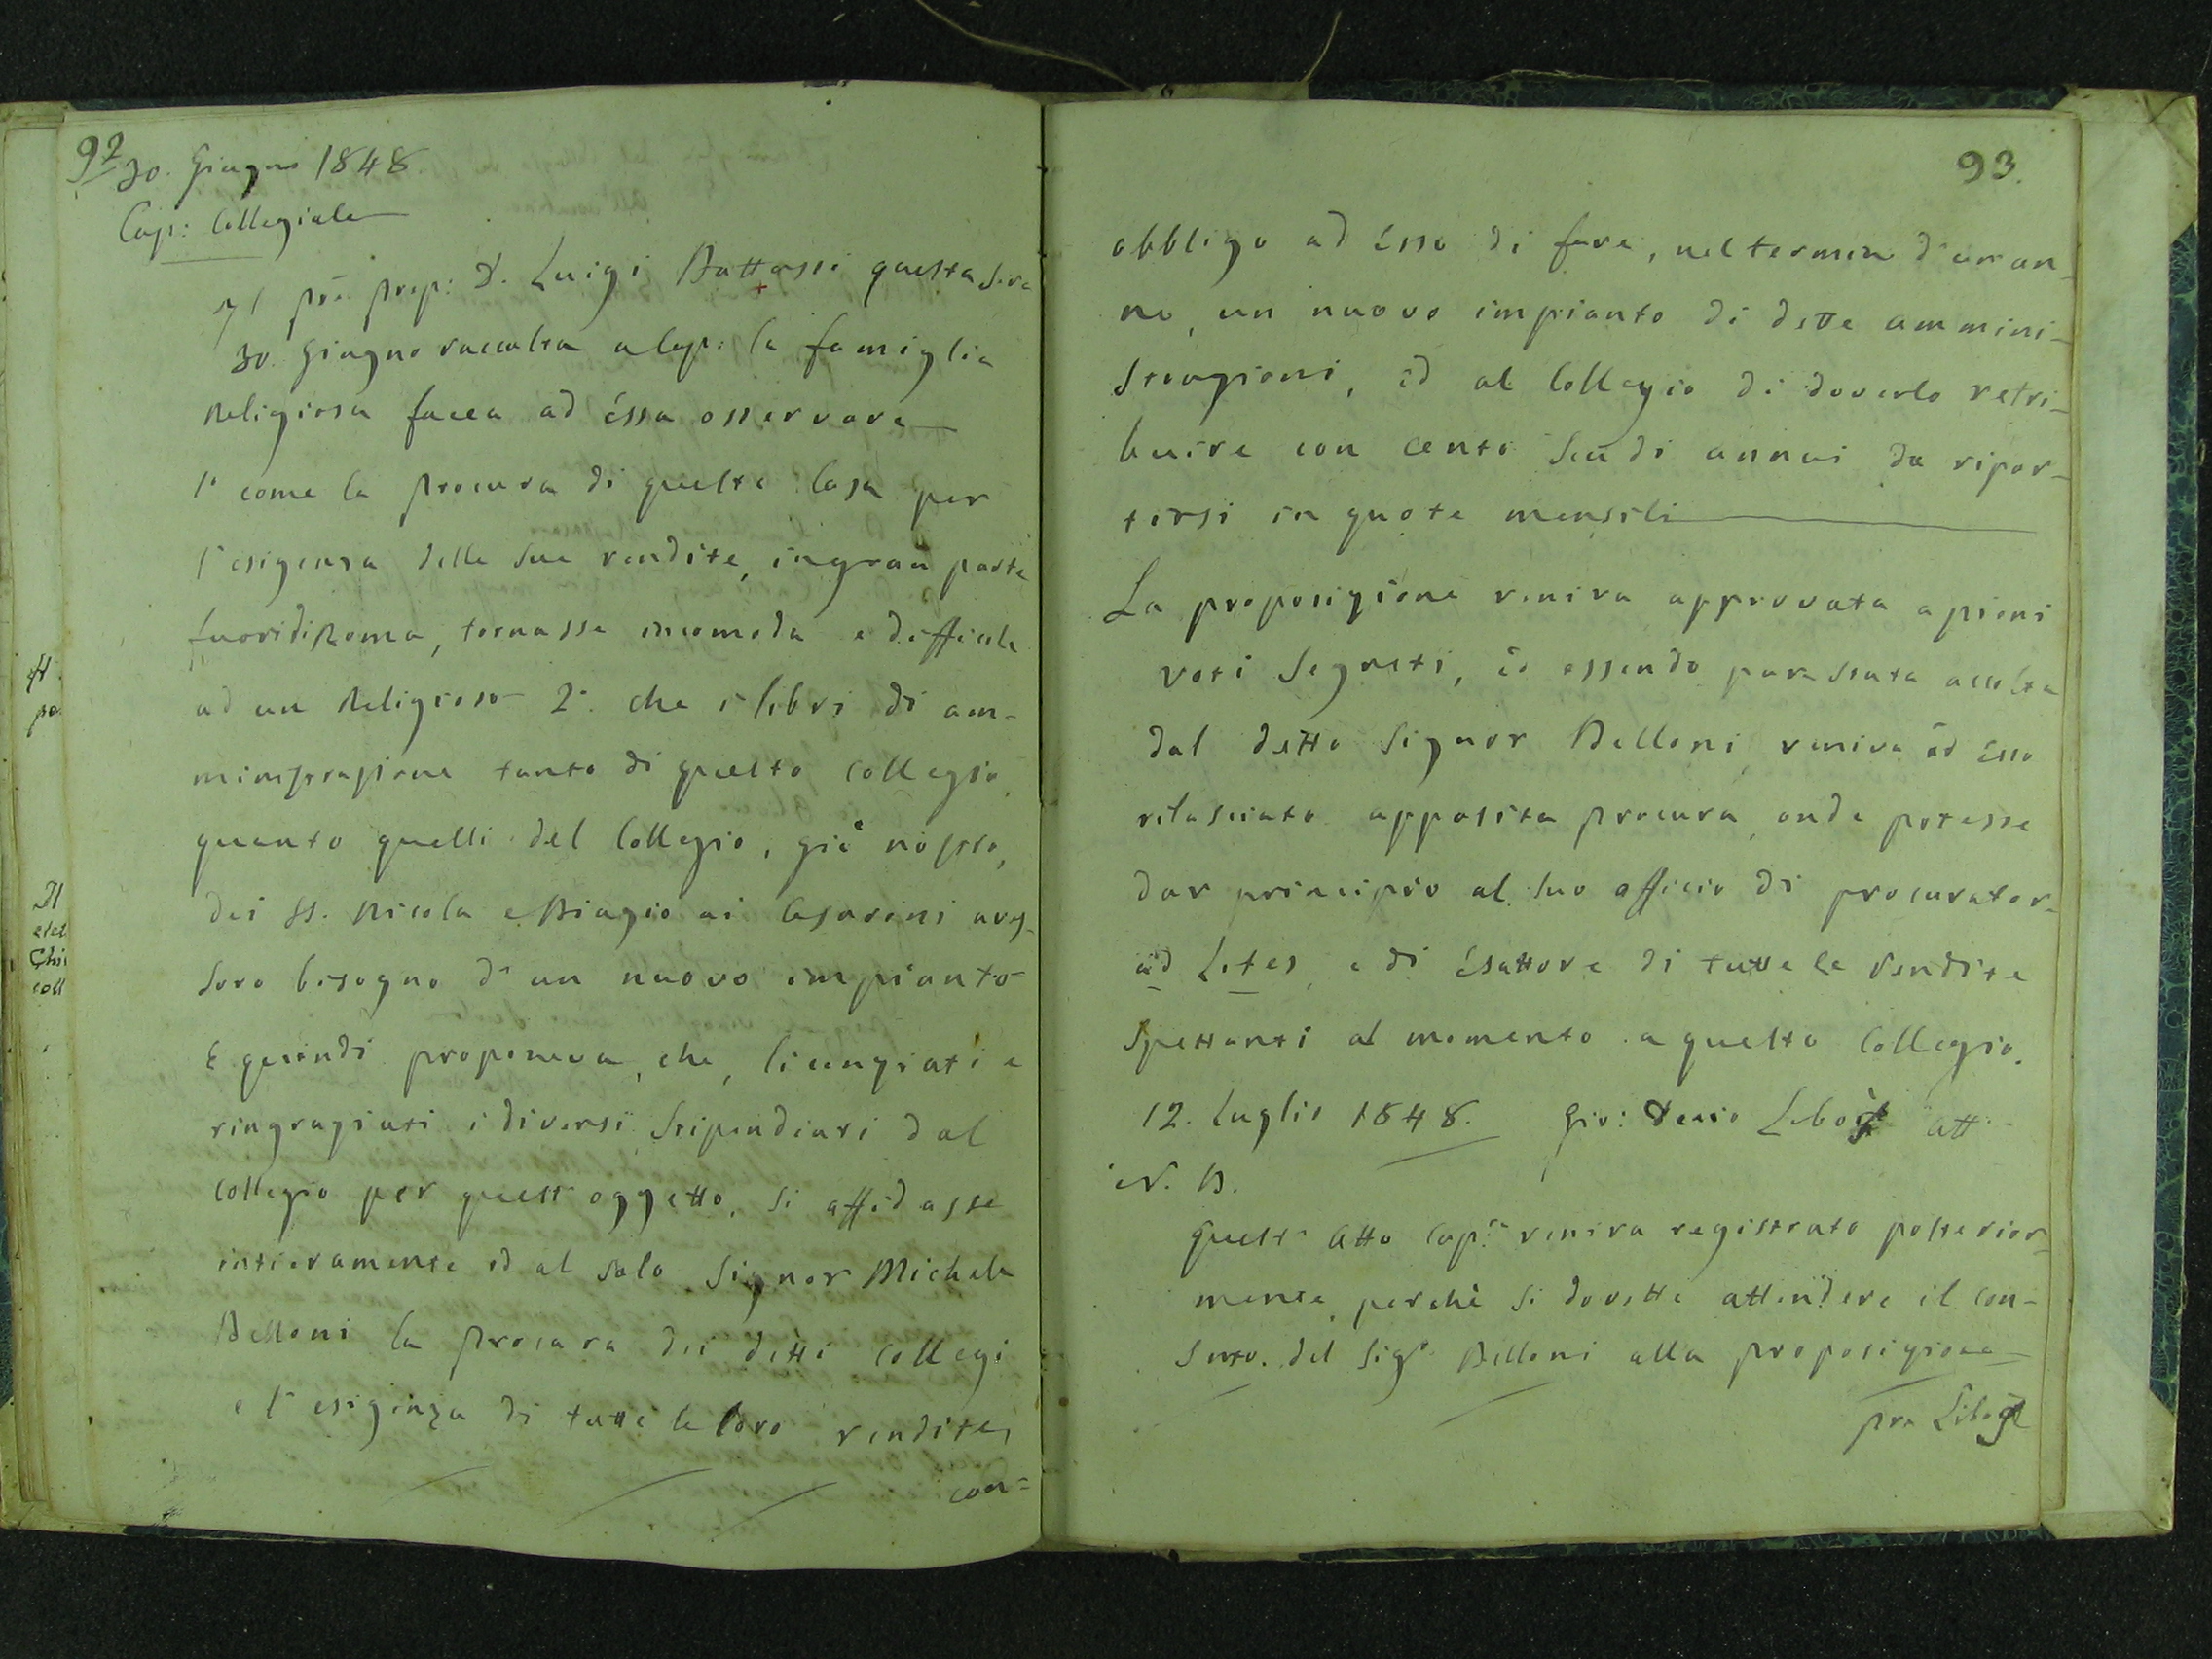 92
30. Giugno 1848.
Cap: Collegiale
Il prē prep: D. Luigi Battassi questa sera
30. Giugno raccolta a Cap: la famiglia
Religiosa facea ad essa osservare
1° come la procura di questa Casa per
l'esigenza delle sue rendite, in gran parte
fuori di Roma, tornasse incomoda e difficile
ad un Religioso 2°. che i libri di am-
ministrazione tanto di questo Collegio,
quanto quelli del Collegio, già nostro,
dei SS. Nicola e Biagio ai Cesarini aves-
sero bisogno d'un nuovo impianto
E quindi proponeva, che, licenziati e
ringraziati i diversi stipendiari dal
Collegio per quest'oggetto, si affidasse
intieramente ed al solo Signor Michele
Belloni la procura dei detti Collegi
e l'esigenza di tutte le loro rendite,
con=
93.
obbligo ad esso di fare, nel termine d'un an-
no, un nuovo impianto di dette ammini-
strazioni, ed al Collegio di doverlo retri-
buire con cento scudi annui da ripor-
tirsi in quote mensili
La proposizione veniva approvata a pieni
voti segreti, ed essendo pure stata accolta
dal detto Signor Belloni veniva ad esso
rilasciata apposita procura, onde potesse
dar principio al suo officio di procurator
ad Lites, e di esattore di tutte le rendite
spettanti al momento a questo Collegio.
12. Luglio 1848. Gio: Decio Libois att.
N. B.
Quest'Atto Cap:re veniva registrato posterior-
mente, perchè si dovette attendere il con-
senso del Sigr Belloni alla proposizione
Libois
Il
Chi
coll